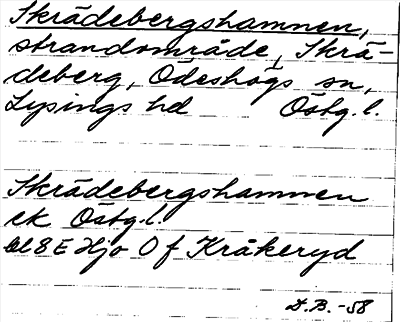 Skrädebergshamnen,
strandområde, Skrä-
deberg, Ödeshögs sn,
Lysings hd Östg. l.
Skrädebergshamnen
ek Östg. l.
bl 8 E Hjo O f Kråkeryd
D.B. -58